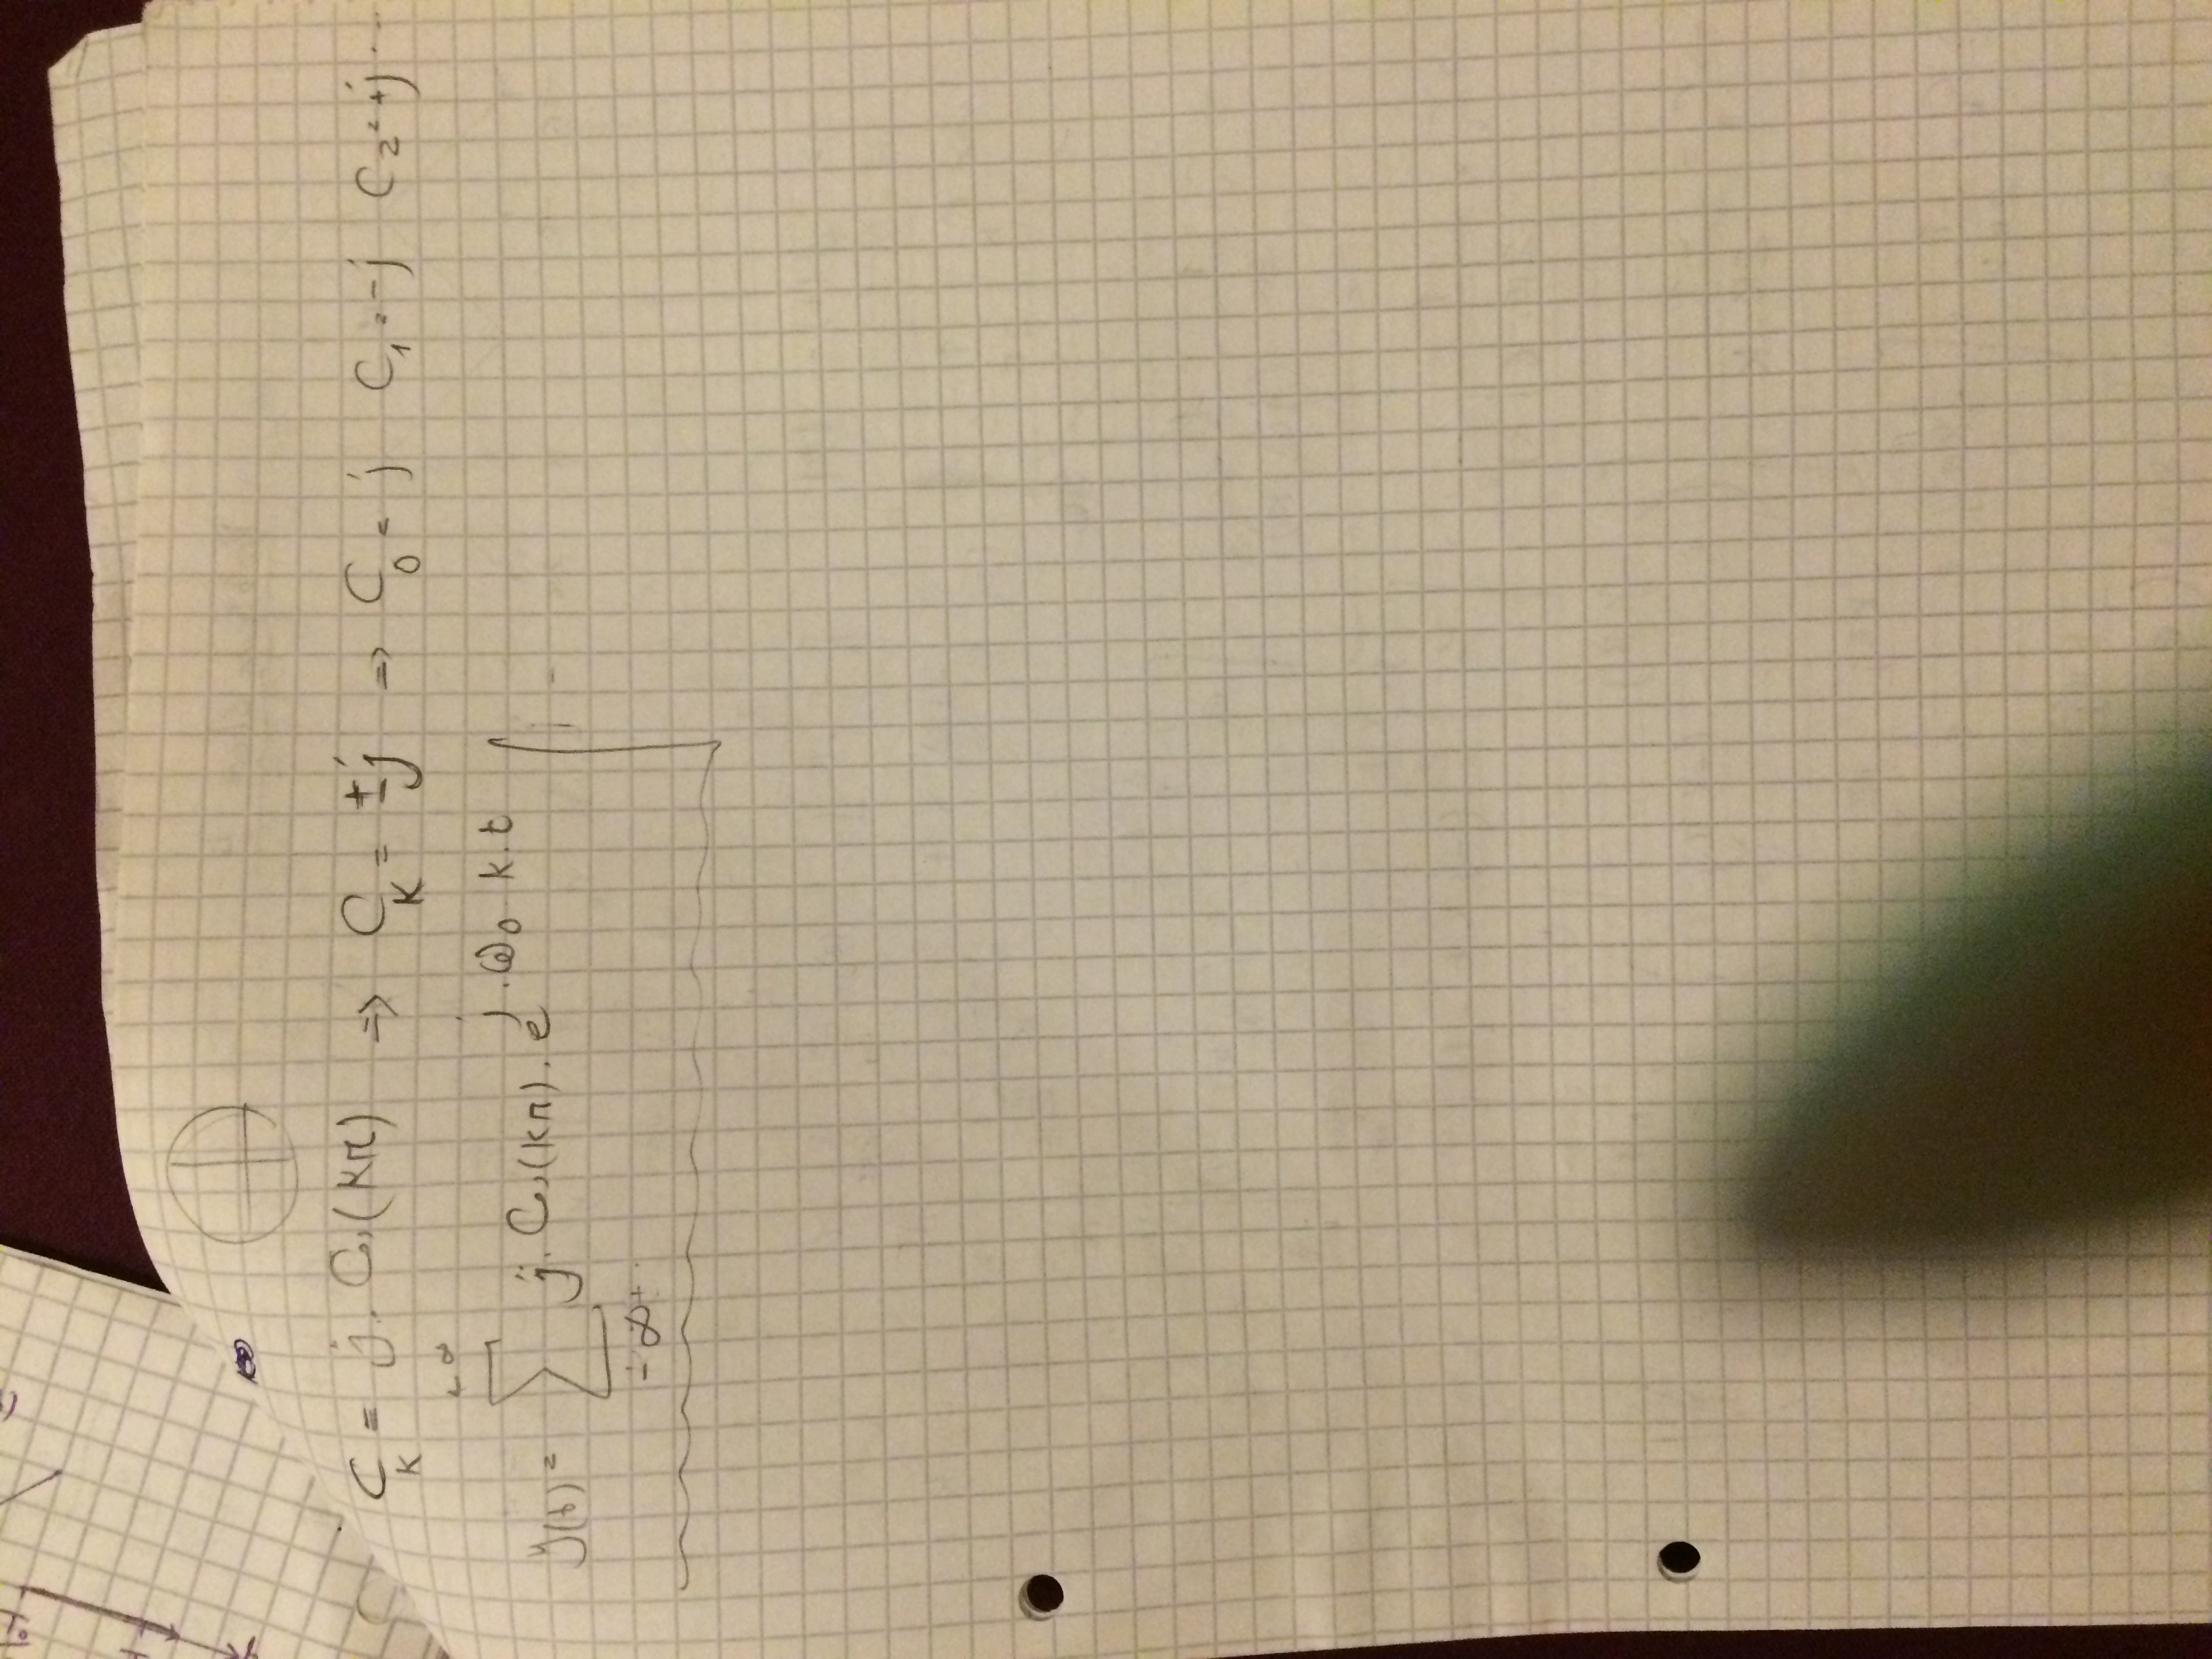 C_K = j. Cos(kπ) => C_K = ±j => C_0 = j C_1 = -j C_2 = +j ...
+∞
y(t) = Σ j. Cos(kπ). e^{j.ω_0 k.t}
-∞